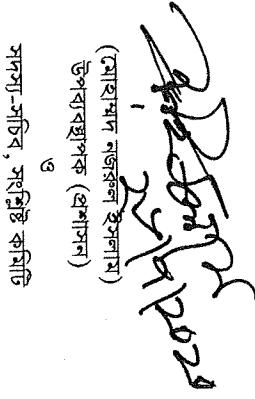 ২৮/৭/২০২০
(মোহাম্মদ নজরুল ইসলাম)
উপব্যবস্থাপক (প্রশাসন)
ও
সদস্য-সচিব, সংশ্লিষ্ট কমিটি